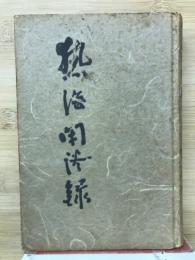 熱海閑談録